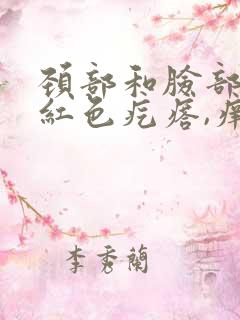 頸部和臉部
紅色疙瘩,癢
李秀蘭